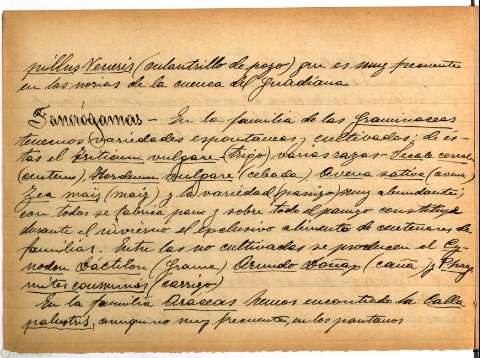 pillus Veneris (culantrillo de pozo) que es muy frecuente
en las norias de la cuenca del Guadiana
Fanerógamas - En la familia de las Graminaceas
tenemos variedades espontaneas y cultivadas; de és-
tas el triticum vulgare (trigo) varias razas - Secale cereale
(centeno), Hordeum vulgare (cebada) Avena sativa (avena)
Zea maiz (maiz) y la variedad (panizo) muy abundante;
con todas se fabrica pan y sobre todo el panizo constituye
durante el invierno el esclusivo alimento de centenares de
familias. Entre las no cultivadas se producen el Cy-
nodon Dáctilon (grama) Arundo Donax (caña) y Phrag
mites communis (carrizo)
En la familia Araceas hemos encontrado la Calla
palustris, aunque no muy frecuente, en los pantanos